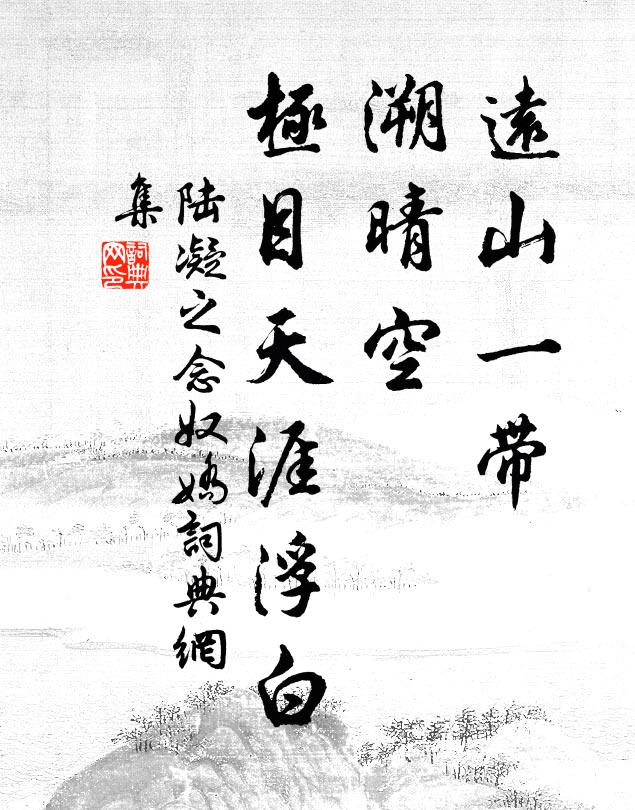 遠山一帶
溯晴空
極目天涯浮白
陸凝之念奴嬌詞典網
集
詞典